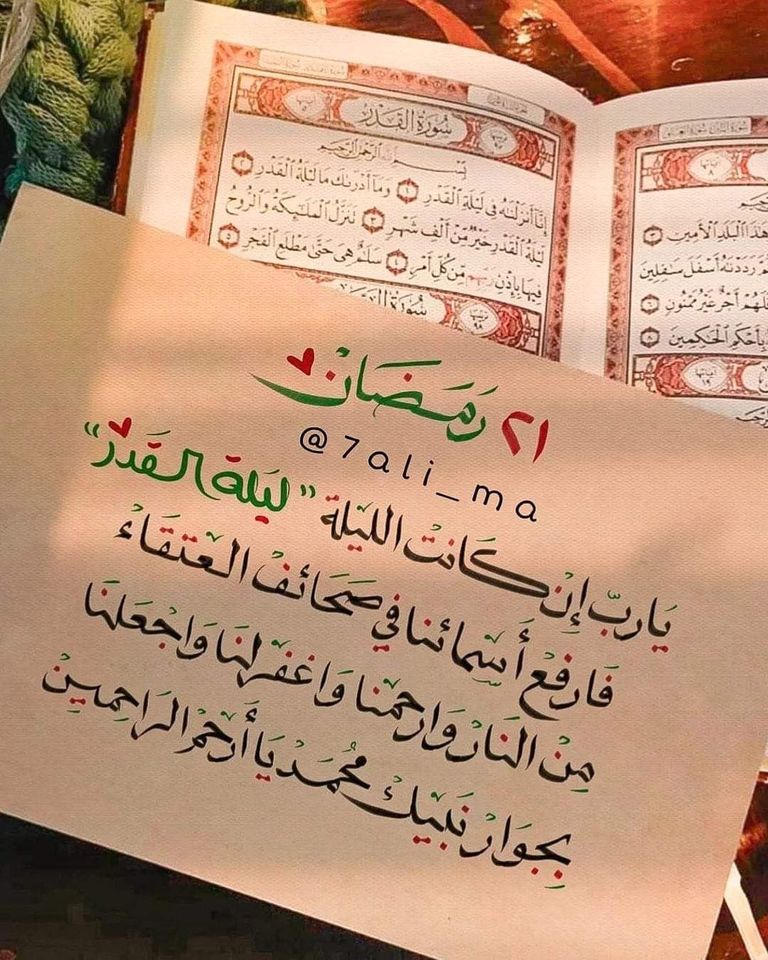 سُورَةُ القَدْرِ
بِسْمِ اللَّهِ الرَّحْمَٰنِ الرَّحِيمِ
إِنَّا أَنزَلْنَٰهُ فِى لَيْلَةِ الْقَدْرِ ١ وَمَا أَدْرَىٰكَ مَا لَيْلَةُ الْقَدْرِ ٢
لَيْلَةُ الْقَدْرِ خَيْرٌ مِّنْ أَلْفِ شَهْرٍ ٣ تَنَزَّلُ الْمَلَٰٓئِكَةُ وَالرُّوحُ
فِيهَا بِإِذْنِ رَبِّهِم مِّن كُلِّ أَمْرٍ ٤ سَلَٰمٌ هِىَ حَتَّىٰ مَطْلَعِ الْفَجْرِ ٥
هَٰذَا الْبَلَدِ الْأَمِينِ ٣
رَدَدْنَٰهُ أَسْفَلَ سَٰفِلِينَ
فَلَهُمْ أَجْرٌ غَيْرُ مَمْنُونٍ ٦
بِأَحْكَمِ الْحَٰكِمِينَ ٨
٢١ رَمَضَان
@7ali_ma
يَاربّ إِنْ كَانتْ الليلة "ليَلة القَدر"
فَارفعْ أَسمِائنا في صَحَائفْ العتقَاءْ
مِنْ النَارْ وَارحمْنا وَاغفرلنَا وَاجْعَلنَا
بِجوَارْ نَبيكْ مُحمَد يَا أَرحَمْ الرَاحِمينْ